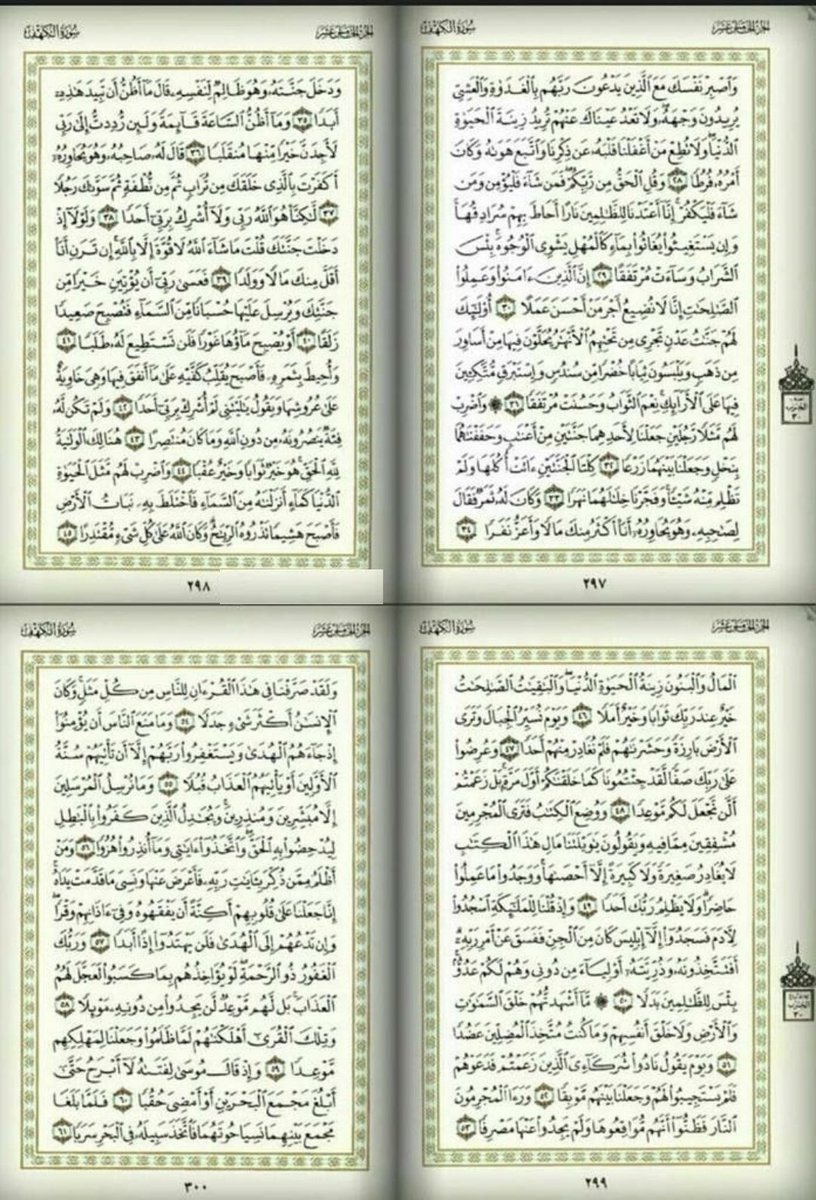 الجزء الخامس عشر
سورة الكهف
وَٱصۡبِرۡ نَفۡسَكَ مَعَ ٱلَّذِينَ يَدۡعُونَ رَبَّهُم بِٱلۡغَدَوٰةِ وَٱلۡعَشِيِّ
يُرِيدُونَ وَجۡهَهُۥۖ وَلَا تَعۡدُ عَيۡنَاكَ عَنۡهُمۡ تُرِيدُ زِينَةَ ٱلۡحَيَوٰةِ
ٱلدُّنۡيَاۖ وَلَا تُطِعۡ مَنۡ أَغۡفَلۡنَا قَلۡبَهُۥ عَن ذِكۡرِنَا وَٱتَّبَعَ هَوَىٰهُ وَكَانَ
أَمۡرُهُۥ فُرُطٗا ٢٨ وَقُلِ ٱلۡحَقُّ مِن رَّبِّكُمۡۖ فَمَن شَآءَ فَلۡيُؤۡمِن وَمَن
شَآءَ فَلۡيَكۡفُرۡۚ إِنَّآ أَعۡتَدۡنَا لِلظَّٰلِمِينَ نَارًا أَحَاطَ بِهِمۡ سُرَادِقُهَاۚ
وَإِن يَسۡتَغِيثُواْ يُغَاثُواْ بِمَآءٖ كَٱلۡمُهۡلِ يَشۡوِي ٱلۡوُجُوهَۚ بِئۡسَ
ٱلشَّرَابُ وَسَآءَتۡ مُرۡتَفَقًا ٢٩ إِنَّ ٱلَّذِينَ ءَامَنُواْ وَعَمِلُواْ
ٱلصَّٰلِحَٰتِ إِنَّا لَا نُضِيعُ أَجۡرَ مَنۡ أَحۡسَنَ عَمَلًا ٣٠ أُوْلَٰٓئِكَ
لَهُمۡ جَنَّٰتُ عَدۡنٖ تَجۡرِي مِن تَحۡتِهِمُ ٱلۡأَنۡهَٰرُ يُحَلَّوۡنَ فِيهَا مِنۡ أَسَاوِرَ
مِن ذَهَبٖ وَيَلۡبَسُونَ ثِيَابًا خُضۡرٗا مِّن سُندُسٖ وَإِسۡتَبۡرَقٖ مُّتَّكِـِٔينَ
فِيهَا عَلَى ٱلۡأَرَآئِكِۚ نِعۡمَ ٱلثَّوَابُ وَحَسُنَتۡ مُرۡتَفَقٗا ٣١ ۞ وَٱضۡرِبۡ
لَهُم مَّثَلٗا رَّجُلَيۡنِ جَعَلۡنَا لِأَحَدِهِمَا جَنَّتَيۡنِ مِنۡ أَعۡنَٰبٖ وَحَفَفۡنَٰهُمَا
بِنَخۡلٖ وَجَعَلۡنَا بَيۡنَهُمَا زَرۡعٗا ٣٢ كِلۡتَا ٱلۡجَنَّتَيۡنِ ءَاتَتۡ أُكُلَهَا وَلَمۡ
تَظۡلِم مِّنۡهُ شَيۡـٔٗاۚ وَفَجَّرۡنَا خِلَٰلَهُمَا نَهَرٗا ٣٣ وَكَانَ لَهُۥ ثَمَرٞ فَقَالَ
لِصَٰحِبِهِۦ وَهُوَ يُحَاوِرُهُۥٓ أَنَا۠ أَكۡثَرُ مِنكَ مَالٗا وَأَعَزُّ نَفَرٗا ٣٤
الحزب
٣٠
٢٩٧
الجزء الخامس عشر
سورة الكهف
وَدَخَلَ جَنَّتَهُۥ وَهُوَ ظَالِمٞ لِّنَفۡسِهِۦ قَالَ مَآ أَظُنُّ أَن تَبِيدَ هَٰذِهِۦٓ
أَبَدٗا ٣٥ وَمَآ أَظُنُّ ٱلسَّاعَةَ قَآئِمَةٗ وَلَئِن رُّدِدتُّ إِلَىٰ رَبِّي
لَأَجِدَنَّ خَيۡرٗا مِّنۡهَا مُنقَلَبٗا ٣٦ قَالَ لَهُۥ صَاحِبُهُۥ وَهُوَ يُحَاوِرُهُۥٓ
أَكَفَرۡتَ بِٱلَّذِي خَلَقَكَ مِن تُرَابٖ ثُمَّ مِن نُّطۡفَةٖ ثُمَّ سَوَّىٰكَ رَجُلٗا
٣٧ لَّٰكِنَّا۠ هُوَ ٱللَّهُ رَبِّي وَلَآ أُشۡرِكُ بِرَبِّيٓ أَحَدٗا ٣٨ وَلَوۡلَآ إِذۡ
دَخَلۡتَ جَنَّتَكَ قُلۡتَ مَا شَآءَ ٱللَّهُ لَا قُوَّةَ إِلَّا بِٱللَّهِۚ إِن تَرَنِ أَنَا۠
أَقَلَّ مِنكَ مَالٗا وَوَلَدٗا ٣٩ فَعَسَىٰ رَبِّيٓ أَن يُؤۡتِيَنِ خَيۡرٗا مِّن
جَنَّتِكَ وَيُرۡسِلَ عَلَيۡهَا حُسۡبَانٗا مِّنَ ٱلسَّمَآءِ فَتُصۡبِحَ صَعِيدٗا
زَلَقًا ٤٠ أَوۡ يُصۡبِحَ مَآؤُهَا غَوۡرٗا فَلَن تَسۡتَطِيعَ لَهُۥ طَلَبٗا ٤١
وَأُحِيطَ بِثَمَرِهِۦ فَأَصۡبَحَ يُقَلِّبُ كَفَّيۡهِ عَلَىٰ مَآ أَنفَقَ فِيهَا وَهِيَ خَاوِيَةٌ
عَلَىٰ عُرُوشِهَا وَيَقُولُ يَٰلَيۡتَنِي لَمۡ أُشۡرِكۡ بِرَبِّيٓ أَحَدٗا ٤٢ وَلَمۡ تَكُن لَّهُۥ
فِئَةٞ يَنصُرُونَهُۥ مِن دُونِ ٱللَّهِ وَمَا كَانَ مُنتَصِرًا ٤٣ هُنَالِكَ ٱلۡوَلَٰيَةُ
لِلَّهِ ٱلۡحَقِّۚ هُوَ خَيۡرٞ ثَوَابٗا وَخَيۡرٌ عُقۡبٗا ٤٤ وَٱضۡرِبۡ لَهُم مَّثَلَ ٱلۡحَيَوٰةِ
ٱلدُّنۡيَا كَمَآءٍ أَنزَلۡنَٰهُ مِنَ ٱلسَّمَآءِ فَٱخۡتَلَطَ بِهِۦ نَبَاتُ ٱلۡأَرۡضِ
فَأَصۡبَحَ هَشِيمٗا تَذۡرُوهُ ٱلرِّيَٰحُۗ وَكَانَ ٱللَّهُ عَلَىٰ كُلِّ شَيۡءٖ مُّقۡتَدِرًا ٤٥
٢٩٨
الجزء الخامس عشر
سورة الكهف
ٱلۡمَالُ وَٱلۡبَنُونَ زِينَةُ ٱلۡحَيَوٰةِ ٱلدُّنۡيَاۖ وَٱلۡبَٰقِيَٰتُ ٱلصَّٰلِحَٰتُ
خَيۡرٌ عِندَ رَبِّكَ ثَوَابٗا وَخَيۡرٌ أَمَلٗا ٤٦ وَيَوۡمَ نُسَيِّرُ ٱلۡجِبَالَ وَتَرَى
ٱلۡأَرۡضَ بَارِزَةٗ وَحَشَرۡنَٰهُمۡ فَلَمۡ نُغَادِرۡ مِنۡهُمۡ أَحَدٗا ٤٧ وَعُرِضُواْ
عَلَىٰ رَبِّكَ صَفّٗا لَّقَدۡ جِئۡتُمُونَا كَمَا خَلَقۡنَٰكُمۡ أَوَّلَ مَرَّةِۭۚ بَلۡ زَعَمۡتُمۡ
أَلَّن نَّجۡعَلَ لَكُم مَّوۡعِدٗا ٤٨ وَوُضِعَ ٱلۡكِتَٰبُ فَتَرَى ٱلۡمُجۡرِمِينَ
مُشۡفِقِينَ مِمَّا فِيهِ وَيَقُولُونَ يَٰوَيۡلَتَنَا مَالِ هَٰذَا ٱلۡكِتَٰبِ
لَا يُغَادِرُ صَغِيرَةٗ وَلَا كَبِيرَةً إِلَّآ أَحۡصَىٰهَاۚ وَوَجَدُواْ مَا عَمِلُواْ
حَاضِرٗاۗ وَلَا يَظۡلِمُ رَبُّكَ أَحَدٗا ٤٩ وَإِذۡ قُلۡنَا لِلۡمَلَٰٓئِكَةِ ٱسۡجُدُواْ
لِأٓدَمَ فَسَجَدُوٓاْ إِلَّآ إِبۡلِيسَ كَانَ مِنَ ٱلۡجِنِّ فَفَسَقَ عَنۡ أَمۡرِ رَبِّهِۦٓۗ
أَفَتَتَّخِذُونَهُۥ وَذُرِّيَّتَهُۥٓ أَوۡلِيَآءَ مِن دُونِي وَهُمۡ لَكُمۡ عَدُوُّۢۚ
بِئۡسَ لِلظَّٰلِمِينَ بَدَلٗا ٥٠ ۞ مَّآ أَشۡهَدتُّهُمۡ خَلۡقَ ٱلسَّمَٰوَٰتِ
وَٱلۡأَرۡضِ وَلَا خَلۡقَ أَنفُسِهِمۡ وَمَا كُنتُ مُتَّخِذَ ٱلۡمُضِلِّينَ عَضُدٗا
٥١ وَيَوۡمَ يَقُولُ نَادُواْ شُرَكَآءِيَ ٱلَّذِينَ زَعَمۡتُمۡ فَدَعَوۡهُمۡ
فَلَمۡ يَسۡتَجِيبُواْ لَهُمۡ وَجَعَلۡنَا بَيۡنَهُم مَّوۡبِقٗا ٥٢ وَرَءَا ٱلۡمُجۡرِمُونَ
ٱلنَّارَ فَظَنُّوٓاْ أَنَّهُم مُّوَاقِعُوهَا وَلَمۡ يَجِدُواْ عَنۡهَا مَصۡرِفٗا ٥٣
الحزب
٣٠
٢٩٩
الجزء الخامس عشر
سورة الكهف
وَلَقَدۡ صَرَّفۡنَا فِي هَٰذَا ٱلۡقُرۡءَانِ لِلنَّاسِ مِن كُلِّ مَثَلٖۚ وَكَانَ
ٱلۡإِنسَٰنُ أَكۡثَرَ شَيۡءٖ جَدَلٗا ٥٤ وَمَا مَنَعَ ٱلنَّاسَ أَن يُؤۡمِنُوٓاْ
إِذۡ جَآءَهُمُ ٱلۡهُدَىٰ وَيَسۡتَغۡفِرُواْ رَبَّهُمۡ إِلَّآ أَن تَأۡتِيَهُمۡ سُنَّةُ
ٱلۡأَوَّلِينَ أَوۡ يَأۡتِيَهُمُ ٱلۡعَذَابُ قُبُلٗا ٥٥ وَمَا نُرۡسِلُ ٱلۡمُرۡسَلِينَ
إِلَّا مُبَشِّرِينَ وَمُنذِرِينَۚ وَيُجَٰدِلُ ٱلَّذِينَ كَفَرُواْ بِٱلۡبَٰطِلِ
لِيُدۡحِضُواْ بِهِ ٱلۡحَقَّۖ وَٱتَّخَذُوٓاْ ءَايَٰتِي وَمَآ أُنذِرُواْ هُزُوٗا ٥٦ وَمَنۡ
أَظۡلَمُ مِمَّن ذُكِّرَ بِـَٔايَٰتِ رَبِّهِۦ فَأَعۡرَضَ عَنۡهَا وَنَسِيَ مَا قَدَّمَتۡ يَدَاهُۚ
إِنَّا جَعَلۡنَا عَلَىٰ قُلُوبِهِمۡ أَكِنَّةً أَن يَفۡقَهُوهُ وَفِيٓ ءَاذَانِهِمۡ وَقۡرٗاۖ
وَإِن تَدۡعُهُمۡ إِلَى ٱلۡهُدَىٰ فَلَن يَهۡتَدُوٓاْ إِذًا أَبَدٗا ٥٧ وَرَبُّكَ
ٱلۡغَفُورُ ذُو ٱلرَّحۡمَةِۖ لَوۡ يُؤَاخِذُهُم بِمَا كَسَبُواْ لَعَجَّلَ لَهُمُ
ٱلۡعَذَابَۚ بَل لَّهُم مَّوۡعِدٞ لَّن يَجِدُواْ مِن دُونِهِۦ مَوۡئِلٗا ٥٨
وَتِلۡكَ ٱلۡقُرَىٰٓ أَهۡلَكۡنَٰهُمۡ لَمَّا ظَلَمُواْ وَجَعَلۡنَا لِمَهۡلِكِهِم
مَّوۡعِدٗا ٥٩ وَإِذۡ قَالَ مُوسَىٰ لِفَتَىٰهُ لَآ أَبۡرَحُ حَتَّىٰٓ
أَبۡلُغَ مَجۡمَعَ ٱلۡبَحۡرَيۡنِ أَوۡ أَمۡضِيَ حُقُبٗا ٦٠ فَلَمَّا بَلَغَا
مَجۡمَعَ بَيۡنِهِمَا نَسِيَا حُوتَهُمَا فَٱتَّخَذَ سَبِيلَهُۥ فِي ٱلۡبَحۡرِ سَرَبٗا ٦١
٣٠٠